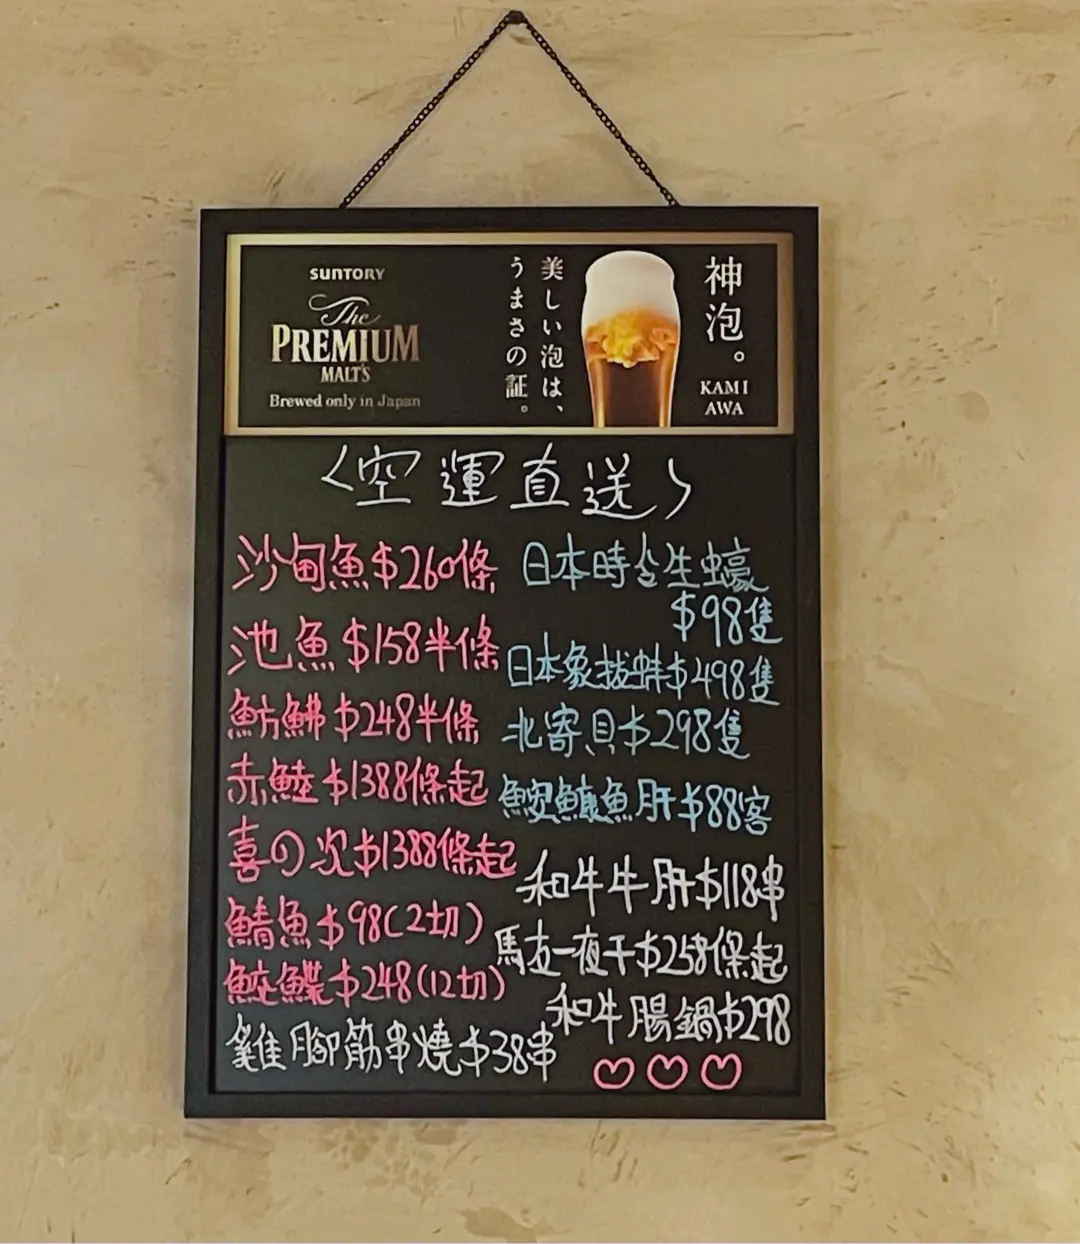 SUNTORY
The
PREMIUM
MALT'S
Brewed only in Japan
神泡。
KAMI
AWA
美しい泡は、
うまさの証。
〈空運直送〉
沙甸魚$260條
池魚$158半條
魴鮄$248半條
赤鯥$1388條起
喜の次$1388條起
鯖魚$98(2切)
$248(12切)
雞腳筋串燒$38串
日本時令生蠔
$98隻
日本象拔蚌$498隻
北寄貝$298隻
鮟鱇魚肝$88客
和牛牛肝$118串
馬友一夜干$258條起
和牛腸鍋$298